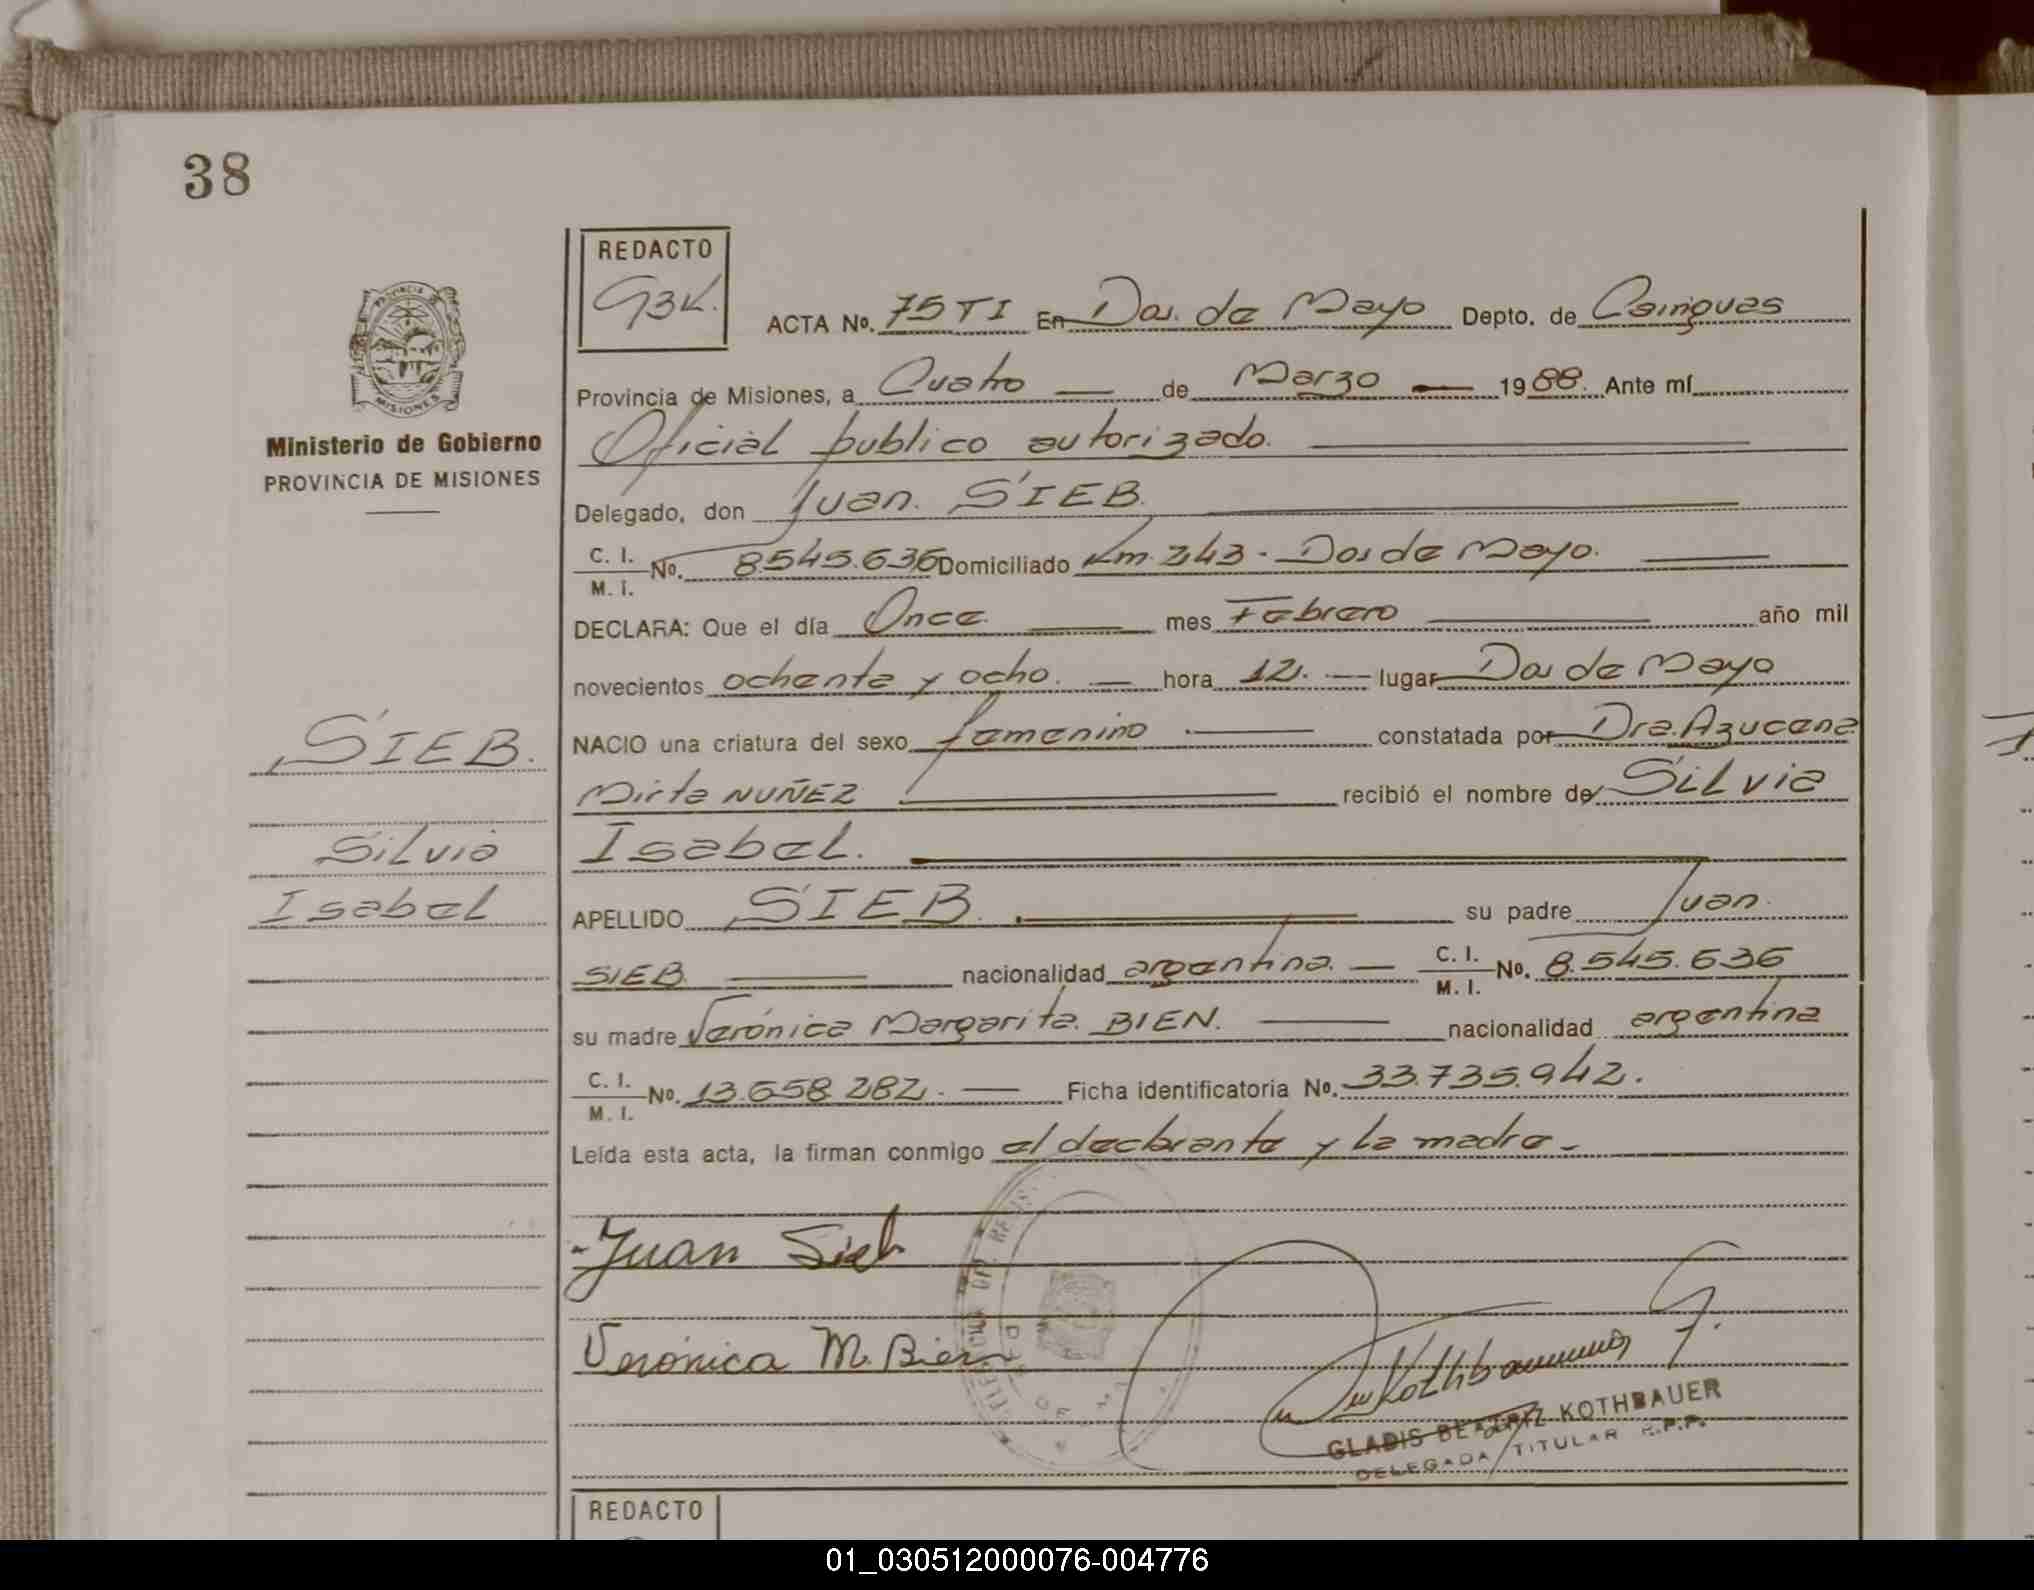 38
REDACTO
GBK.
ACTA No. 75 TI En Dos de Mayo Depto. de Cainguas
Provincia de Misiones, a Cuatro de Marzo 1988. Ante mí
Oficial publico autorizado.
Delegado, don Juan SIEB.
C. I. M. I. No. 8545.636 Domiciliado Km 243 - Dos de Mayo.
DECLARA: Que el día Once mes Febrero año mil
novecientos ochenta y ocho. hora 12. lugar Dos de Mayo
NACIO una criatura del sexo femenino constatada por Dra. Azucena
Mirta NUÑEZ recibió el nombre de Silvia
Isabel.
APELLIDO SIEB. su padre Juan
SIEB nacionalidad argentina. C. I. M. I. No. 8.545.636
su madre Verónica Margarita BIEN. nacionalidad argentina
C. I. M. I. No. 13.658.282. Ficha identificatoria No. 33.735.942.
Leída esta acta, la firman conmigo el declarante y la madre.
Juan Sieb
Verónica M. Bien
GLADIS BEATRIZ KOTHBAUER
DELEGADA TITULAR R.P.P.
REDACTO
PROVINCIA DE
MISIONES
Ministerio de Gobierno
PROVINCIA DE MISIONES
SIEB.
Silvia
Isabel
01_030512000076-004776